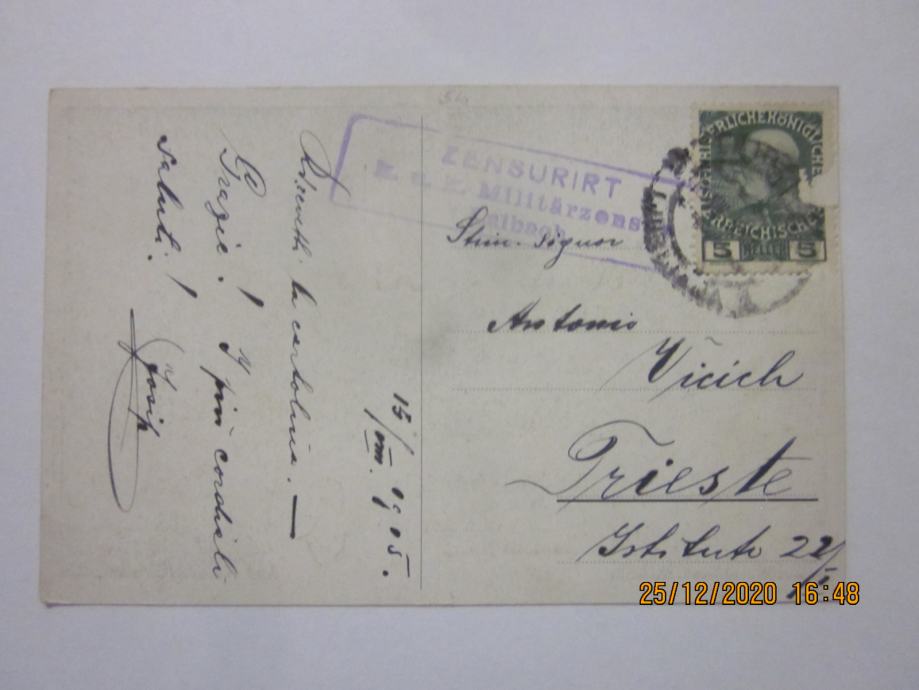 ZENSURIRT
K. u. K. Militärzens
Laibach
KAISERLICHE KÖNIGLICHE
ÖSTERREICHISCHE
5 HELLER 5
Stim. Signor
Antonio
Vičich
Trieste
Istituto 22/I
15/VIII. 1915.
la cartolina. —
Grazie! I più cordiali
saluti!
Josip
25/12/2020 16:48